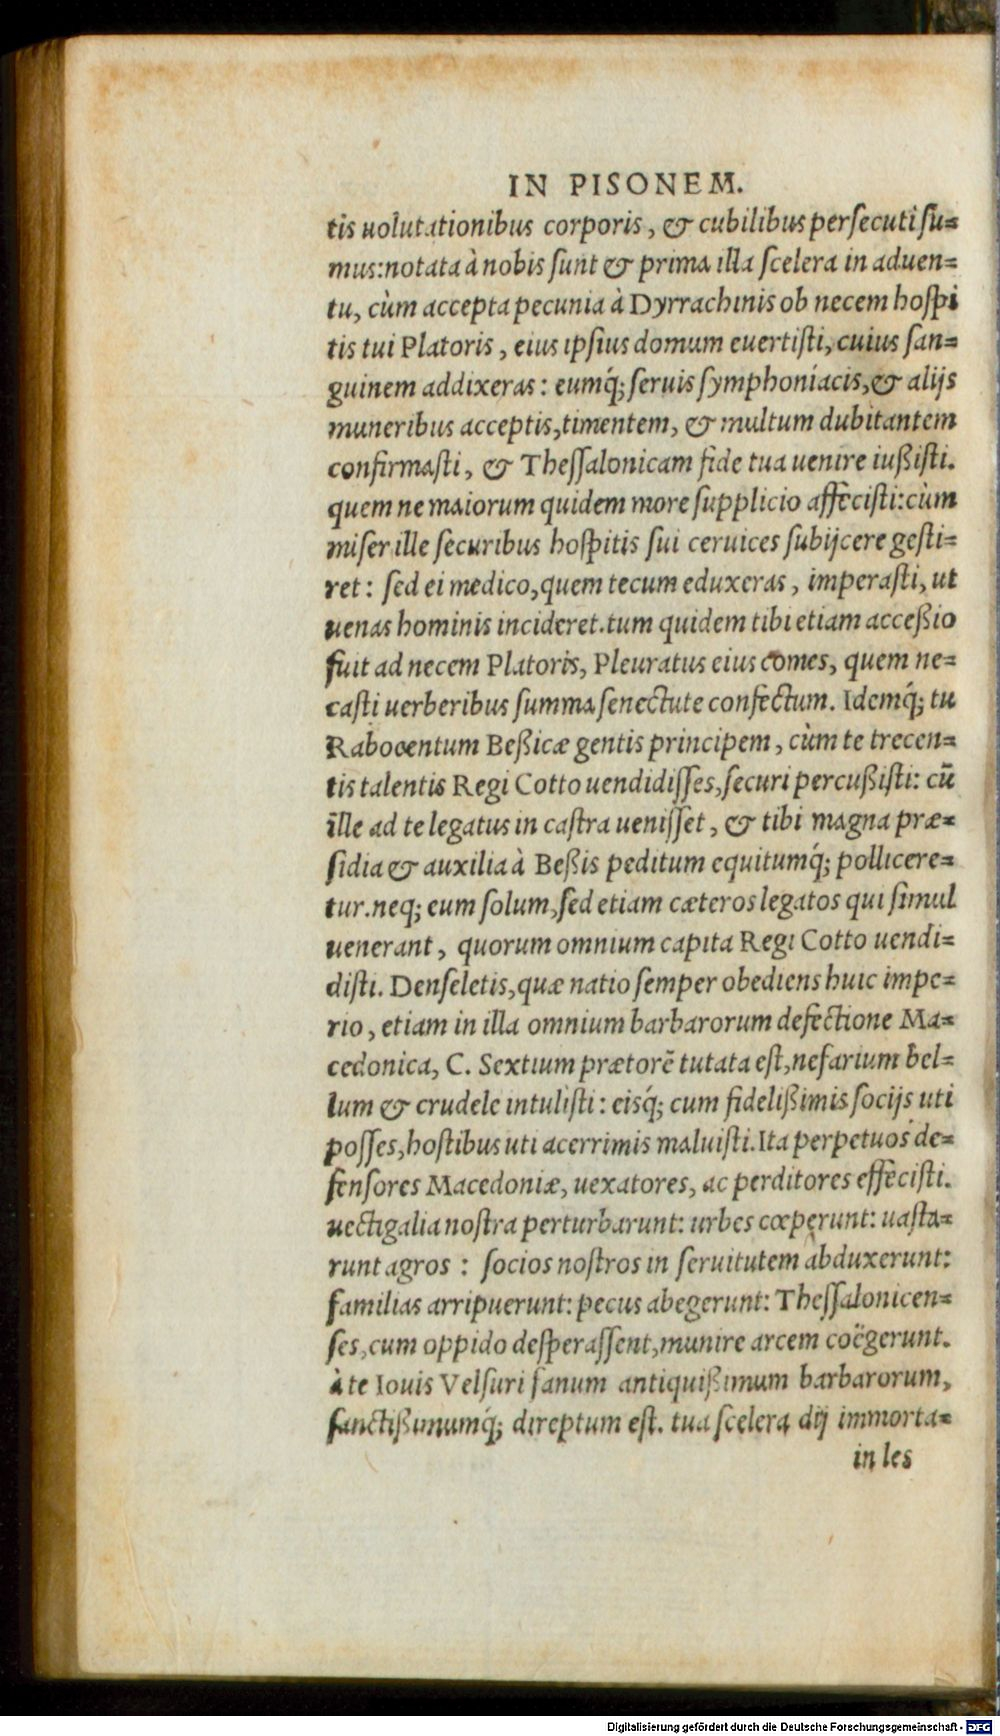 IN PISONEM.
tis uolutationibus corporis, & cubilibus persecuti su=
mus: notata à nobis sunt & prima illa scelera in aduen=
tu, cùm accepta pecunia à Dyrrachinis ob necem hospi
tis tui Platoris, eius ipsius domum euertisti, cuius san=
guinem addixeras: eumq́; seruis symphoniacis, & alijs
muneribus acceptis, timentem, & multum dubitantem
confirmasti, & Thessalonicam fide tua uenire iußisti.
quem ne maiorum quidem more supplicio affecisti: cùm
miser ille securibus hospitis sui ceruices subijcere gesti=
ret: sed ei medico, quem tecum eduxeras, imperasti, ut
uenas hominis incideret. tum quidem tibi etiam acceßio
fuit ad necem Platoris, Pleuratus eius comes, quem ne=
casti uerberibus summa senectute confectum. Idemq́; tu
Rabocentum Beßicæ gentis principem, cùm te trecen=
tis talentis Regi Cotto uendidisses, securi percußisti: cū
ille ad te legatus in castra uenisset, & tibi magna præ=
sidia & auxilia à Beßis peditum equitumq́; pollicere=
tur. neq; eum solum, sed etiam cæteros legatos qui simul
uenerant, quorum omnium capita Regi Cotto uendi=
disti. Denseletis, quæ natio semper obediens huic impe=
rio, etiam in illa omnium barbarorum defectione Ma=
cedonica, C. Sextium prætorē tutata est, nefarium bel=
lum & crudele intulisti: eisq́; cum fidelißimis socijs uti
posses, hostibus uti acerrimis maluisti. Ita perpetuos de=
fensores Macedoniæ, uexatores, ac perditores effecisti.
uectigalia nostra perturbarunt: urbes cœperunt: uasta=
runt agros: socios nostros in seruitutem abduxerunt:
familias arripuerunt: pecus abegerunt: Thessalonicen=
ses, cum oppido desperassent, munire arcem coëgerunt.
à te Iouis Velsuri fanum antiquißimum barbarorum,
sanctißimumq́; direptum est. tua scelera dij immorta=
in les
Digitalisierung gefördert durch die Deutsche Forschungsgemeinschaft - DFG